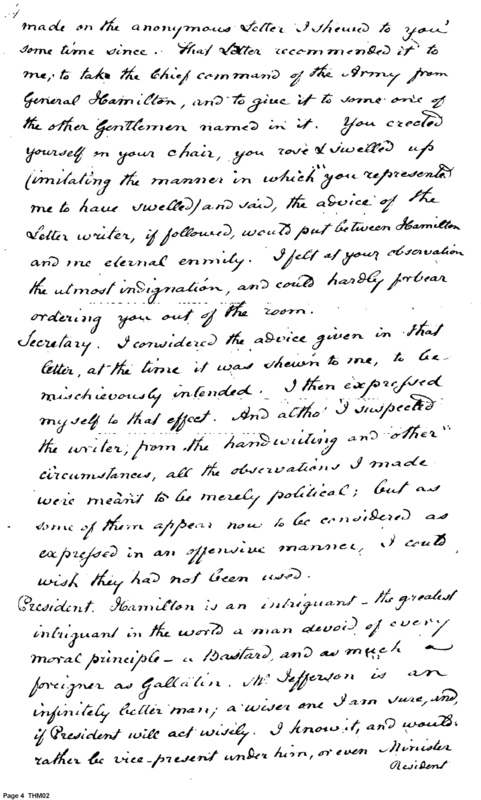 made on the anonymous Letter I shewed to you
some time since. That Letter recommended it to
me, to take the Chief command of the Army from
General Hamilton, and to give it to some one of
the other Gentlemen named in it. You erected
yourself in your chair, you rose & swelled up
(imitating the manner in which you represented
me to have swelled) and said, the advice of the
Letter writer, if followed, would put between Hamilton
and me eternal enmity. I felt at your observation
the utmost indignation, and could hardly forbear
ordering you out of the room.
Secretary. I considered the advice given in that
letter, at the time it was shewn to me, to be
mischievously intended. I then expressed
myself to that effect. And altho' I suspected
the writer, from the handwriting and other
circumstances, all the observations I made
were meant to be merely political; but as
some of them appear now to be considered as
expressed in an offensive manner, I could
wish they had not been used.
President. Hamilton is an intriguant - the greatest
intriguant in the world a man devoid of every
moral principle - a Bastard, and as much a
foreigner as Gallatin. Mr Jefferson is an
infinitely better man; a wiser one I am sure, and,
if President will act wisely. I know it, and would
rather be vice-present under him, or even Minister
Resident
Page 4 THM02